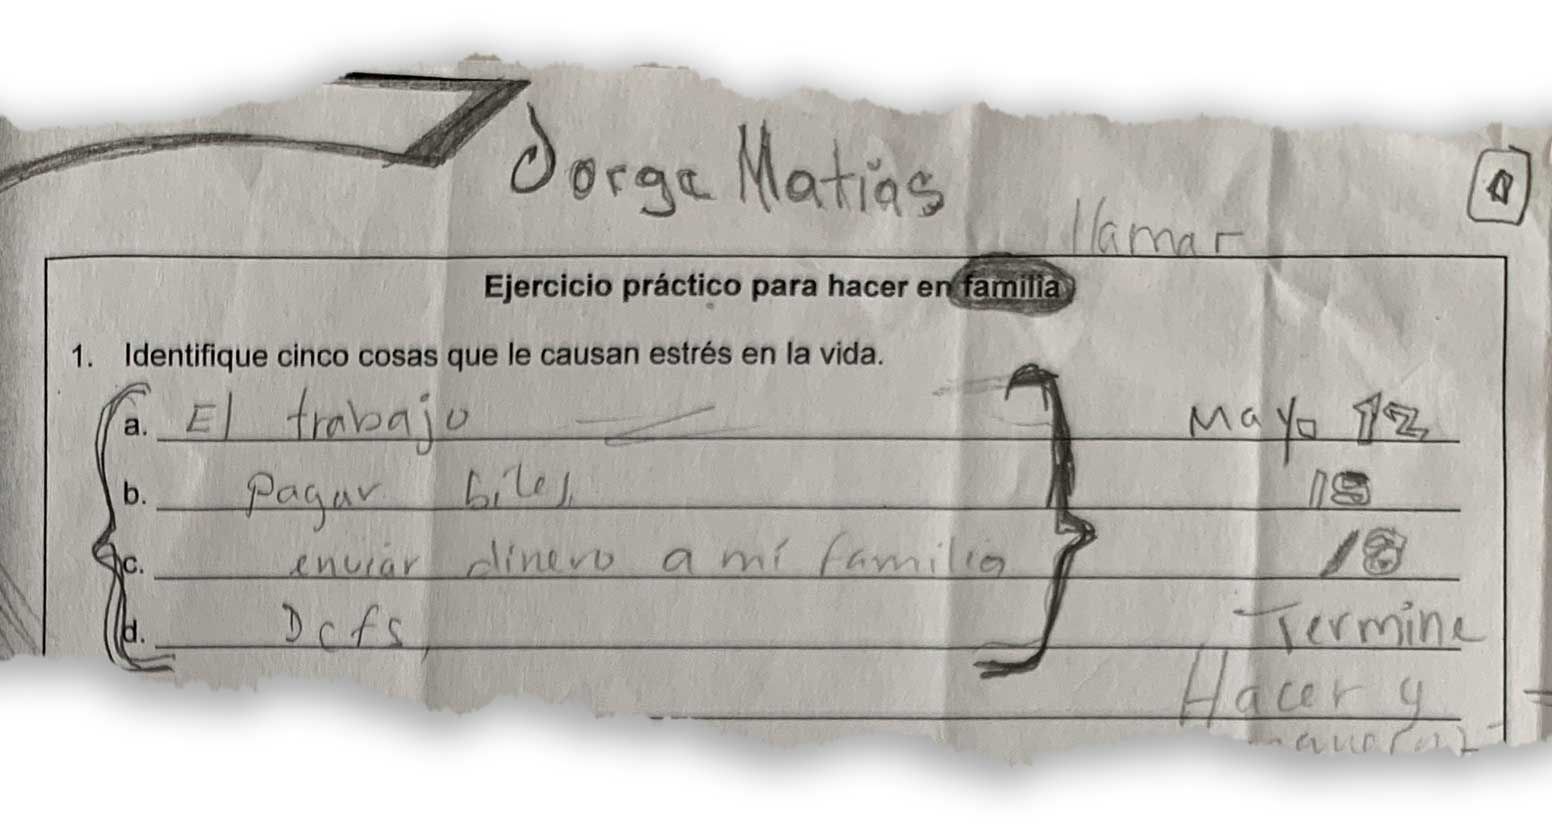 Jorge Matías
llamar
Ejercicio práctico para hacer en familia
1. Identifique cinco cosas que le causan estrés en la vida.
a. El trabajo Mayo 12
b. Pagar biles 15
c. enviar dinero a mi familia 18
d. Dcfs Termine
Hacer y